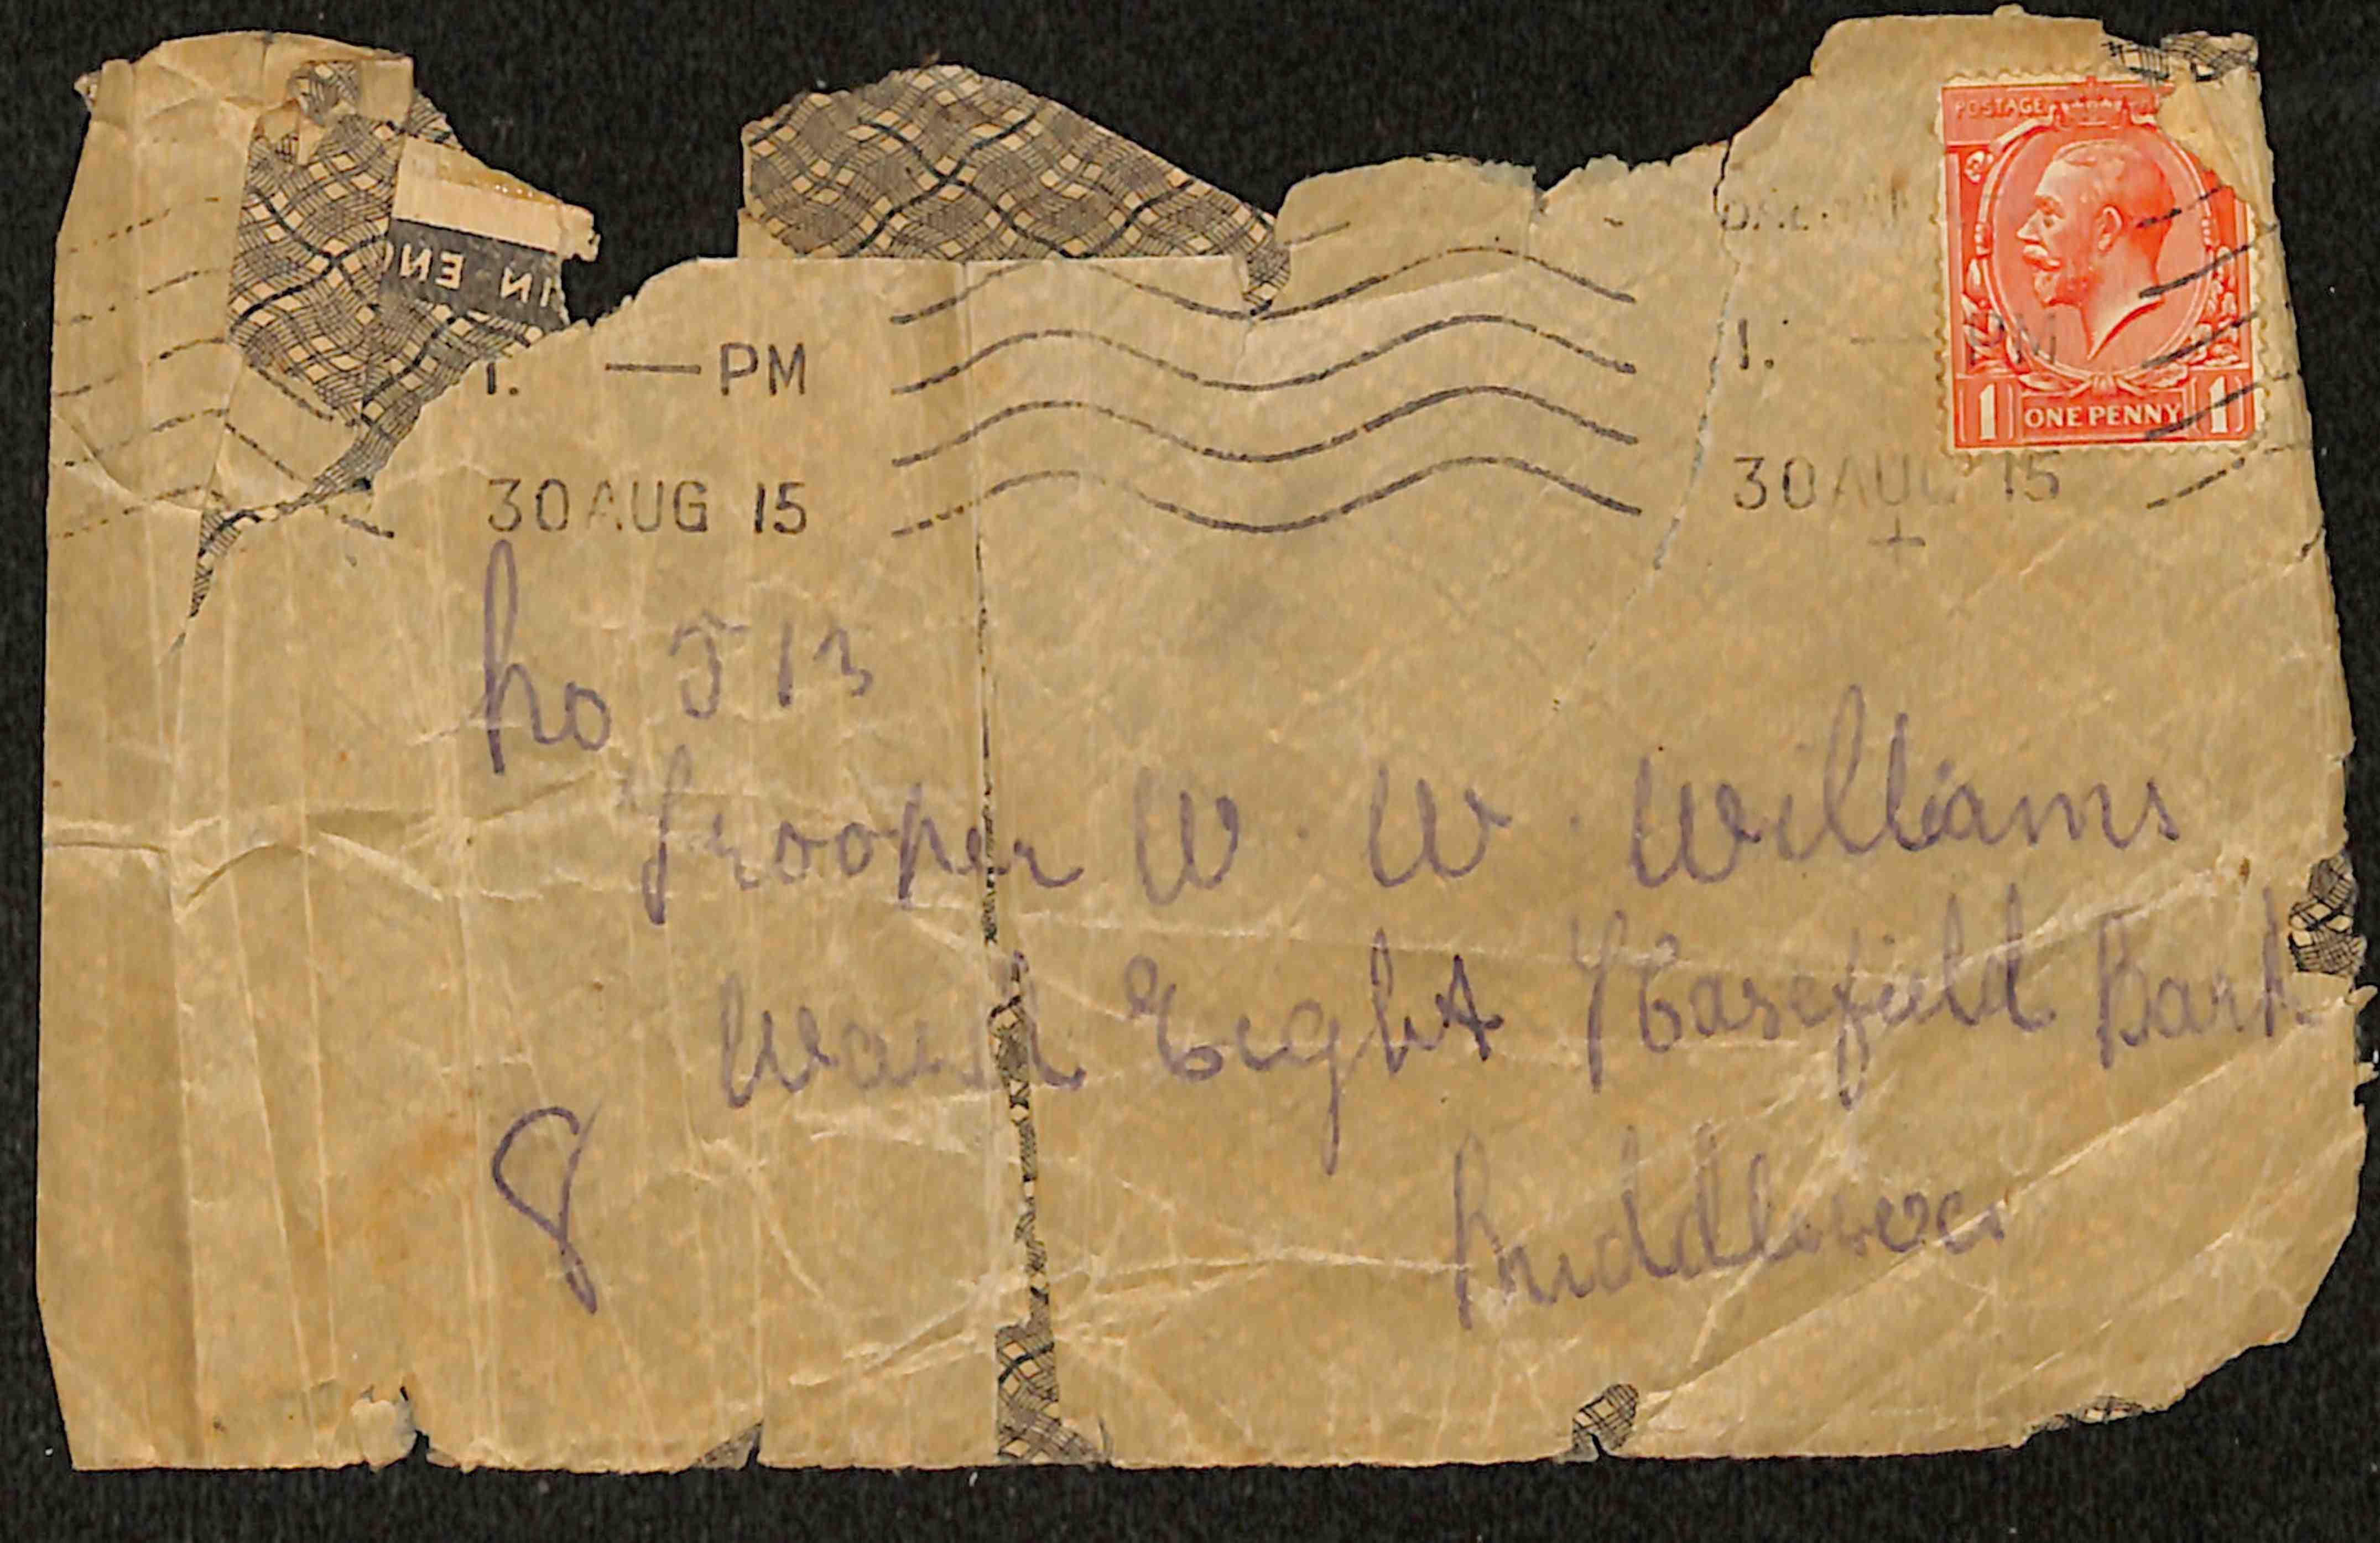 POSTAGE
IN EN
1. — PM
1. — PM
ONE PENNY
1 1
30 AUG 15
30 AUG 15
No 513
Trooper W. W. Williams
Ward Eight Harefield Park
8
Middlesex